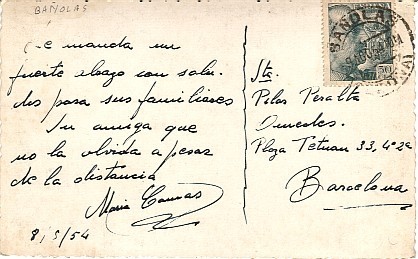 BAÑOLAS
te manda un
fuerte abrazo con salu-
dos para sus familiares
Su amiga que
no la olvida a pesar
de la distancia
Maria
8/5/54
BAÑOLAS
Sta.
Pilar Peralta
Plaza Tetuan 33, 4º 2ª
Barcelona